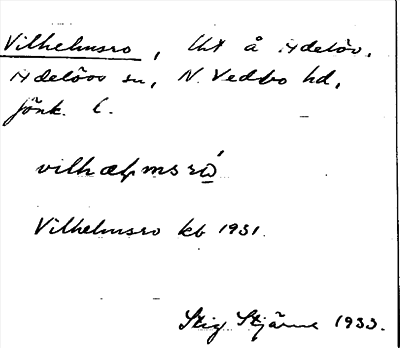 Vilhelmsro, Uht å Adelöv,
Adelövs sn, N. Vedbo hd,
Jönk. l.
Vilhelmsro kb 1931.
Stig Stjärne 1933.